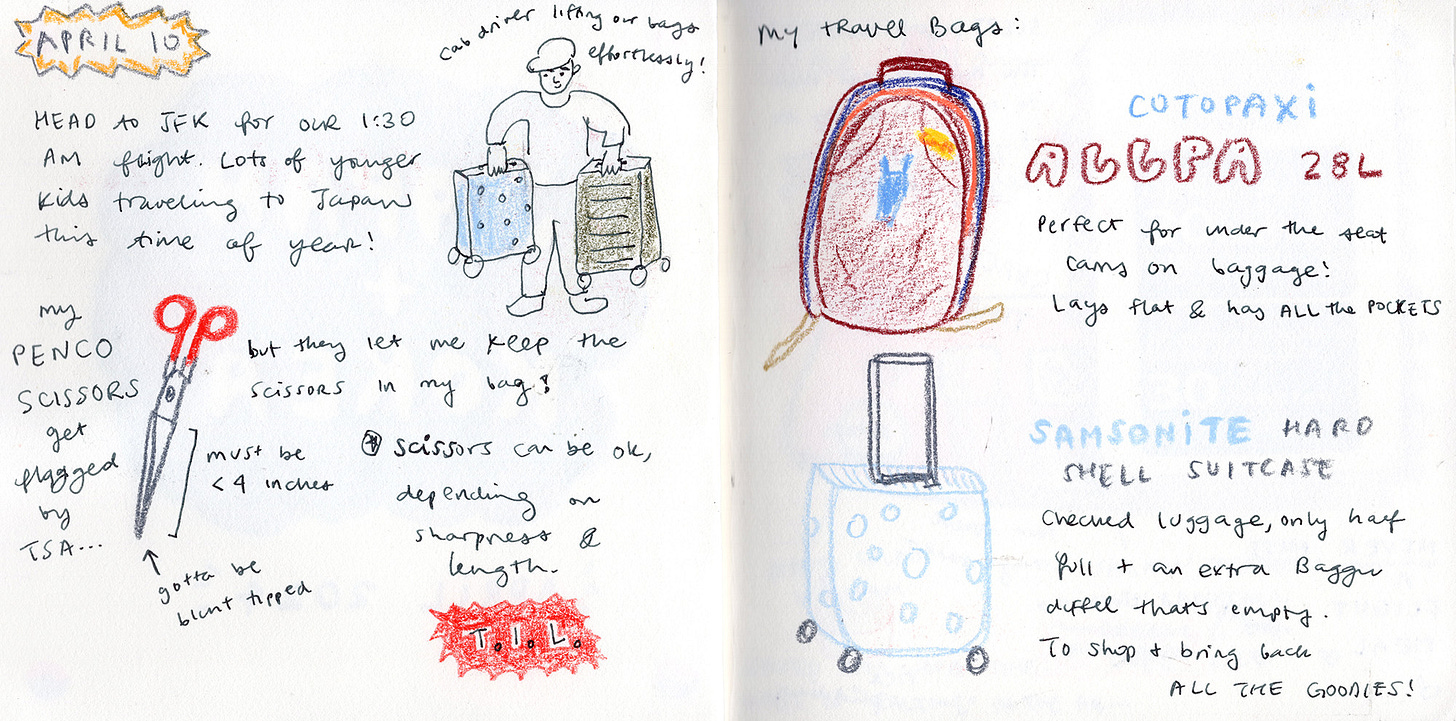 APRIL 10
cab driver lifting our bags
effortlessly!
HEAD to JFK for our 1:30
AM flight. Lots of younger
kids traveling to Japan
this time of year!
my
PENCO
SCISSORS
get
flagged
by
TSA...
but they let me keep the
scissors in my bag!
must be
< 4 inches
gotta be
blunt tipped
* scissors can be ok,
depending on
sharpness &
length.
T.I.L.
My travel Bags:
COTOPAXI
ALLPA 28L
Perfect for under the seat
carry on baggage!
Lays flat & has ALL the POCKETS
SAMSONITE HARD
SHELL SUITCASE
Checked luggage, only half
full + an extra Baggu
duffel that's empty.
To shop & bring back
ALL THE GOODIES!